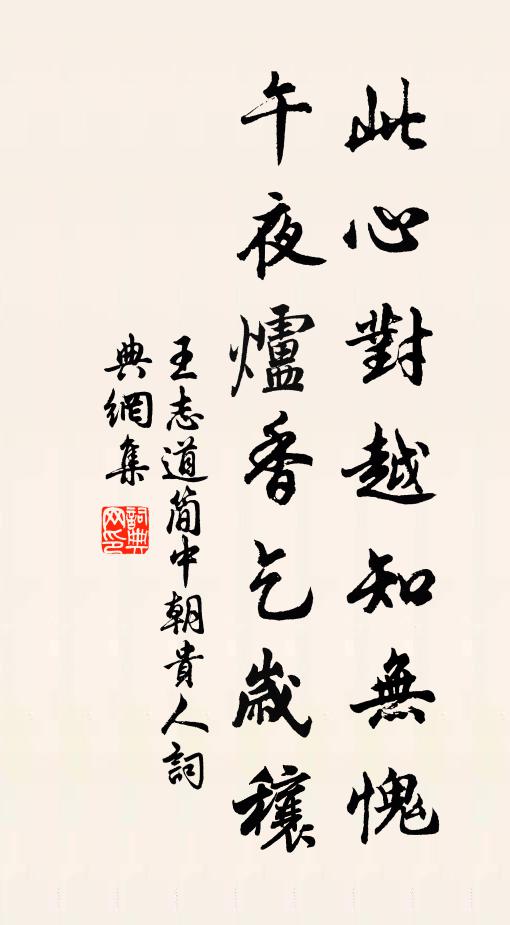 此心對越知無愧
午夜爐香乞歲穰
王志道簡中朝貴人詞
典網集
詞典網印